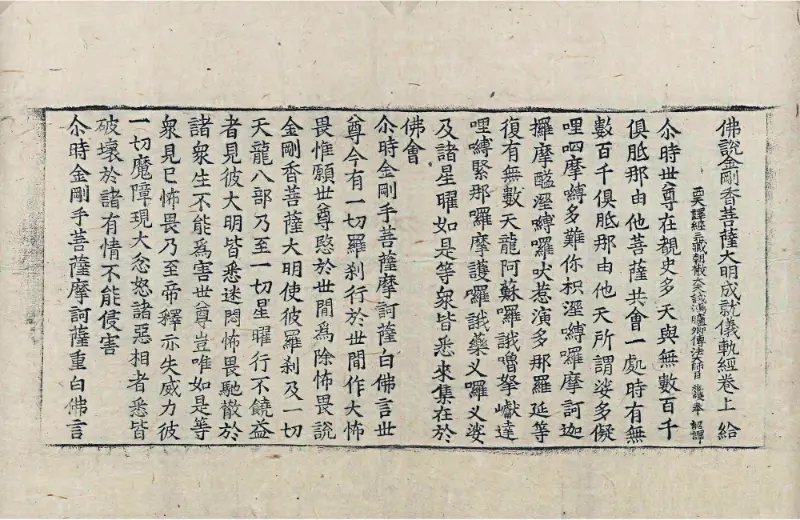 佛說金剛香菩薩大明成就儀軌經卷上 給
西天譯經三藏朝散大夫試鴻臚卿傳法大師臣施護奉 詔譯
尒時世尊在覩史多天與無數百千
俱胝那由他菩薩共會一處時有無
數百千俱胝那由他天所謂娑多儗
哩呬摩嚩多難你枳溼嚩囉摩訶迦
攞摩醯溼嚩囉吠惹演多那羅延等
復有無數天龍阿蘇囉誐嚕拏巘達
哩嚩緊那囉摩護囉誐藥叉囉叉娑
及諸星曜如是等衆皆悉來集在於
佛會
尒時金剛手菩薩摩訶薩白佛言世
尊今有一切羅刹行於世間作大怖
畏惟願世尊愍於世間爲除怖畏說
金剛香菩薩大明使彼羅刹及一切
天龍八部乃至一切星曜行不饒益
者見彼大明皆悉迷悶怖畏馳散於
諸衆生不能爲害世尊豈唯如是等
衆見已怖畏乃至帝釋亦失威力彼
一切魔障現大忿怒諸惡相者悉皆
破壞於諸有情不能侵害
尒時金剛手菩薩摩訶薩重白佛言